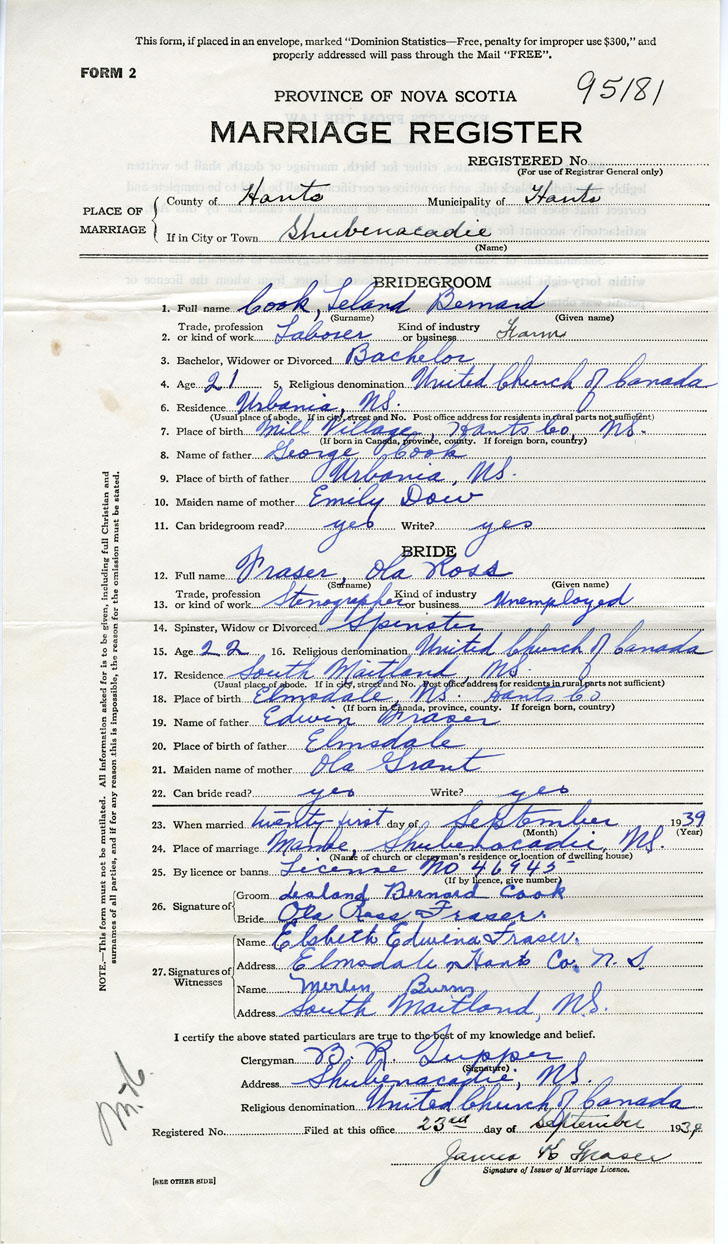 This form, if placed in an envelope, marked "Dominion Statistics—Free, penalty for improper use $300," and
properly addressed will pass through the Mail "FREE".
FORM 2
95181
PROVINCE OF NOVA SCOTIA
MARRIAGE REGISTER
REGISTERED No.
(For use of Registrar General only)
PLACE OF MARRIAGE
County of Hants Municipality of Hants
If in City or Town Shubenacadie
(Name)
BRIDEGROOM
1. Full name Cook, Leland Bernard
(Surname) (Given name)
2. Trade, profession or kind of work Laborer Kind of industry or business Farm
3. Bachelor, Widower or Divorced Bachelor
4. Age 21 5. Religious denomination United Church of Canada
6. Residence Urbania, NS.
(Usual place of abode. If in city, street and No. Post office address for residents in rural parts not sufficient)
7. Place of birth Mill Village, Hants Co, NS.
(If born in Canada, province, county. If foreign born, country)
8. Name of father George Cook
9. Place of birth of father Urbania, NS.
10. Maiden name of mother Emily Dow
11. Can bridegroom read? yes Write? yes
BRIDE
12. Full name Fraser, Ola Ross
(Surname) (Given name)
13. Trade, profession or kind of work Stenographer Kind of industry or business Unemployed
14. Spinster, Widow or Divorced Spinster
15. Age 22 16. Religious denomination United Church of Canada
17. Residence South Maitland, NS
(Usual place of abode. If in city, street and No. Post office address for residents in rural parts not sufficient)
18. Place of birth Elmsdale, NS. Hants Co
(If born in Canada, province, county. If foreign born, country)
19. Name of father Edwin Fraser
20. Place of birth of father Elmsdale
21. Maiden name of mother Ola Grant
22. Can bride read? yes Write? yes
23. When married twenty-first day of September 1939
(Month) (Year)
24. Place of marriage Manse, Shubenacadie, NS.
(Name of church or clergyman's residence or location of dwelling house)
25. By licence or banns License No 46945
(If by licence, give number)
26. Signature of
Groom Leland Bernard Cook
Bride Ola Ross Fraser.
27. Signatures of Witnesses
Name Elsbeth Edwina Fraser.
Address Elmsdale, Hants Co. N.S.
Name Merlin Burns
Address South Maitland, NS.
I certify the above stated particulars are true to the best of my knowledge and belief.
Clergyman B. R. Tupper
(Signature)
Address Shubenacadie, NS.
Religious denomination United Church of Canada
Registered No. Filed at this office 23rd day of September 1939
James Fraser
Signature of Issuer of Marriage Licence.
[SEE OTHER SIDE]
NOTE.—This form must not be mutilated. All information asked for is to be given, including full Christian and
surnames of all parties, and if for any reason this is impossible, the reason for the omission must be stated.